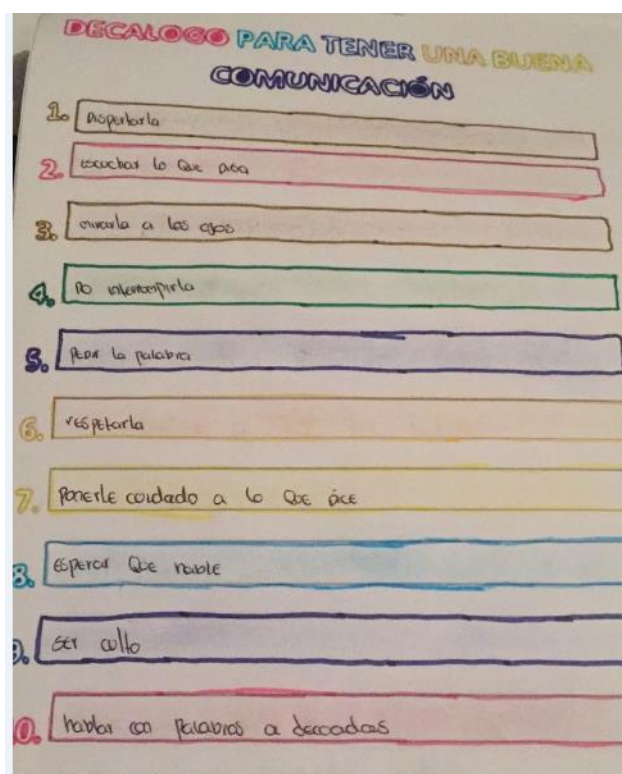 DECALOGO PARA TENER UNA BUENA
COMUNICACIÓN
1.
2. escuchar lo que diga
3. mirarla a los ojos
4. no interrumpirla
5. PEDIR la palabra
6. rESPEtarla
7. PonErlE cuidado a lo QuE dicE
8. EsperaR QuE hablE
9. sEr culto
0. hablar con palabras a decoadas